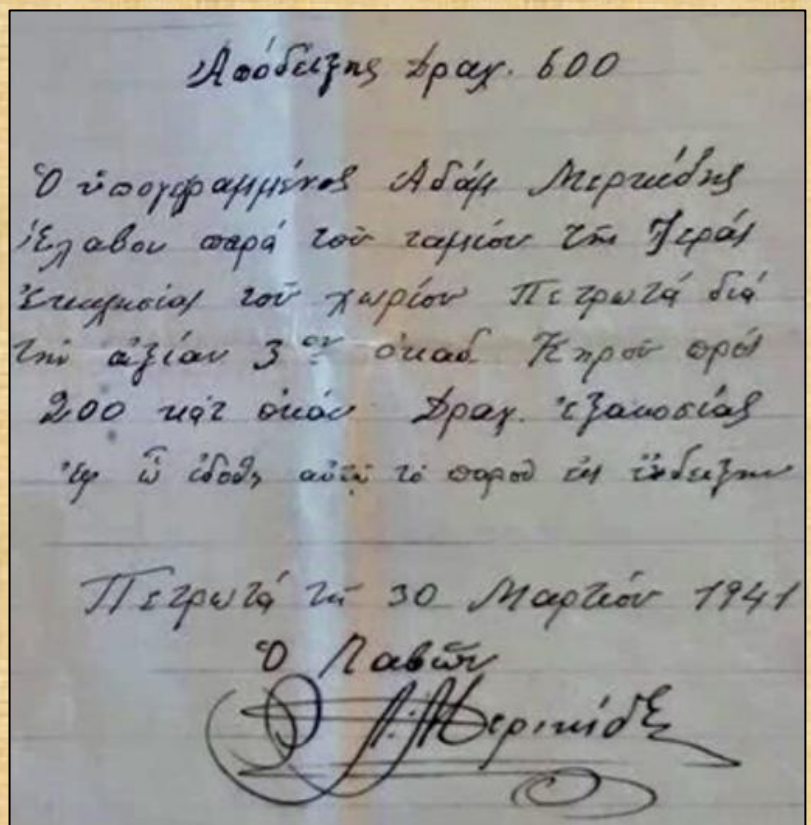 Απόδειξης Δραχ. 600
Ὁ ὑπογεγραμμένος Αδάμ Μερικίδης
ἔλαβον παρά τοῦ ταμίου τῆς Ἱεράς
Ἐκκλησίας τοῦ χωρίου Πετρωτά διά
τήν ἀξίαν 3 ῶν ὀκαδ. Κηροῦ πρός
200 κατ ὀκάν Δραχ. ἑξακοσίας
Ἐφ ᾧ ἐδόθη αὐτῷ τό παρόν εἰς ἔνδειξην
Πετρωτά τῇ 30 Μαρτίου 1941
Ὁ Λαβῶν
Α. Μερικίδης